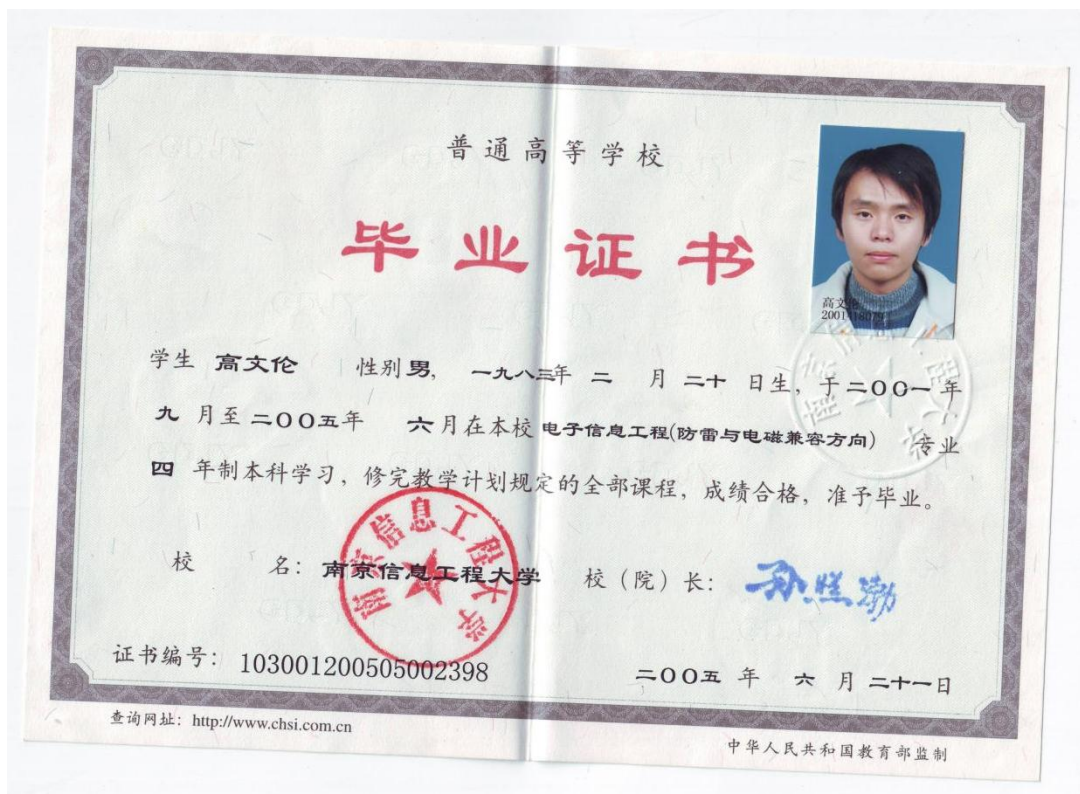 普通高等学校
毕业证书
高文伦
2001418079
学生 高文伦 性别 男, 一九八三年 二 月 二十 日生, 于 二〇〇一 年
九 月至 二〇〇五年 六 月在本校 电子信息工程(防雷与电磁兼容方向) 专业
四 年制本科学习, 修完教学计划规定的全部课程, 成绩合格, 准予毕业。
南京信息工程大学
校 名: 南京信息工程大学 校(院)长: 孙照渤
证书编号: 103001200505002398
二〇〇五 年 六 月 二十一日
查询网址: http://www.chsi.com.cn
中华人民共和国教育部监制